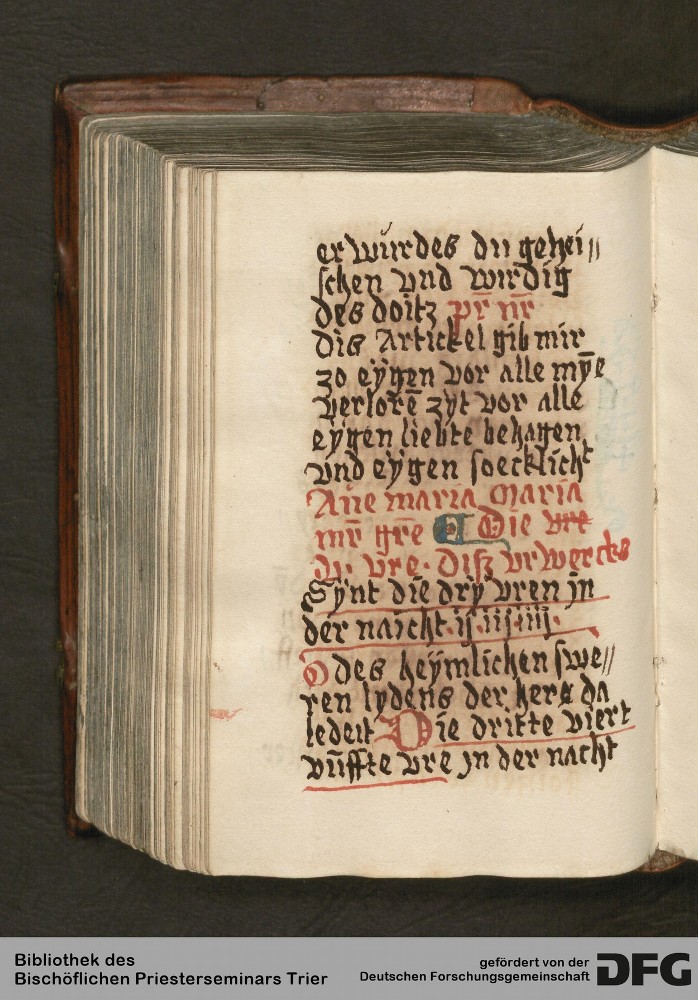 er wúrdes du gehei//
schen vnd wirdig
des doitz pr̄ nr̄
Dis Artickel gib mir
zo eÿgen vor alle mỹe
verlorē zyt vor alle
eÿgen liebte behagen
vnd eÿgen soecklicht
Aue maria Maria
mr̄ gr̄e Die vre
vre Disz vrwercks
Synt die dry vren jn
der naicht ij iij iiij
O des heÿmlichen swe//
ren lydens der here da
ledeit Die dritte viert
vūffte vre jn der nacht
Bibliothek des
Bischöflichen Priesterseminars Trier
gefördert von der
Deutschen Forschungsgemeinschaft
DFG